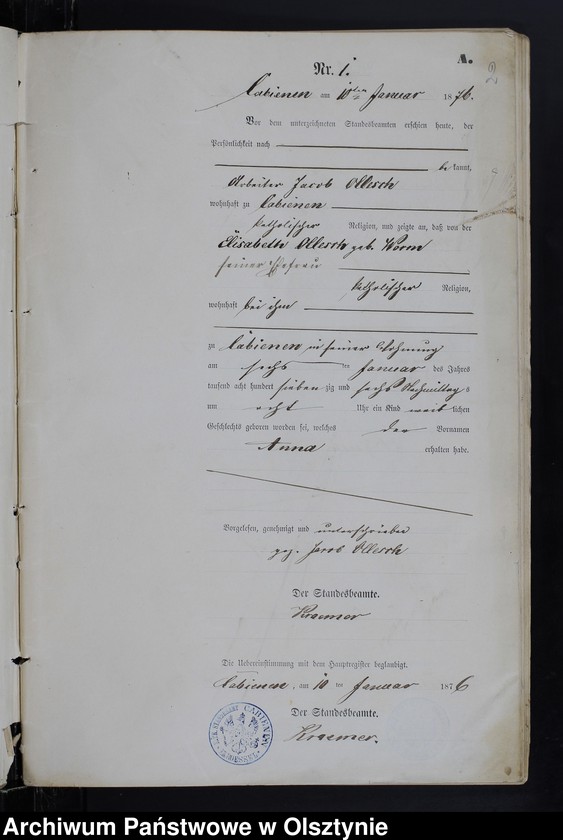 A.
2
Nr. 1.
Cabienen am 10ten Januar 1876.
Vor dem unterzeichneten Standesbeamten erschien heute, der
Persönlichkeit nach
be kannt,
Arbeiter Jacob Ollesch
wohnhaft zu Cabienen
katholischer Religion, und zeigte an, daß von der
Elisabeth Ollesch geb. Worm
seiner Ehefrau
katholischer Religion,
wohnhaft bei ihm
zu Cabienen in seiner Wohnung
am sechs ten Januar des Jahres
tausend acht hundert sieben zig und sechs Nachmittag s
um acht Uhr ein Kind weib lichen
Geschlechts geboren worden sei, welches den Vornamen
Anna erhalten habe.
Vorgelesen, genehmigt und unterschrieben
gez. Jacob Ollesch
Der Standesbeamte.
Kraemer
Die Uebereinstimmung mit dem Hauptregister beglaubigt.
Cabienen, am 10 ten Januar 1876
Der Standesbeamte.
Kraemer.
CABIENEN
Archiwum Państwowe w Olsztynie